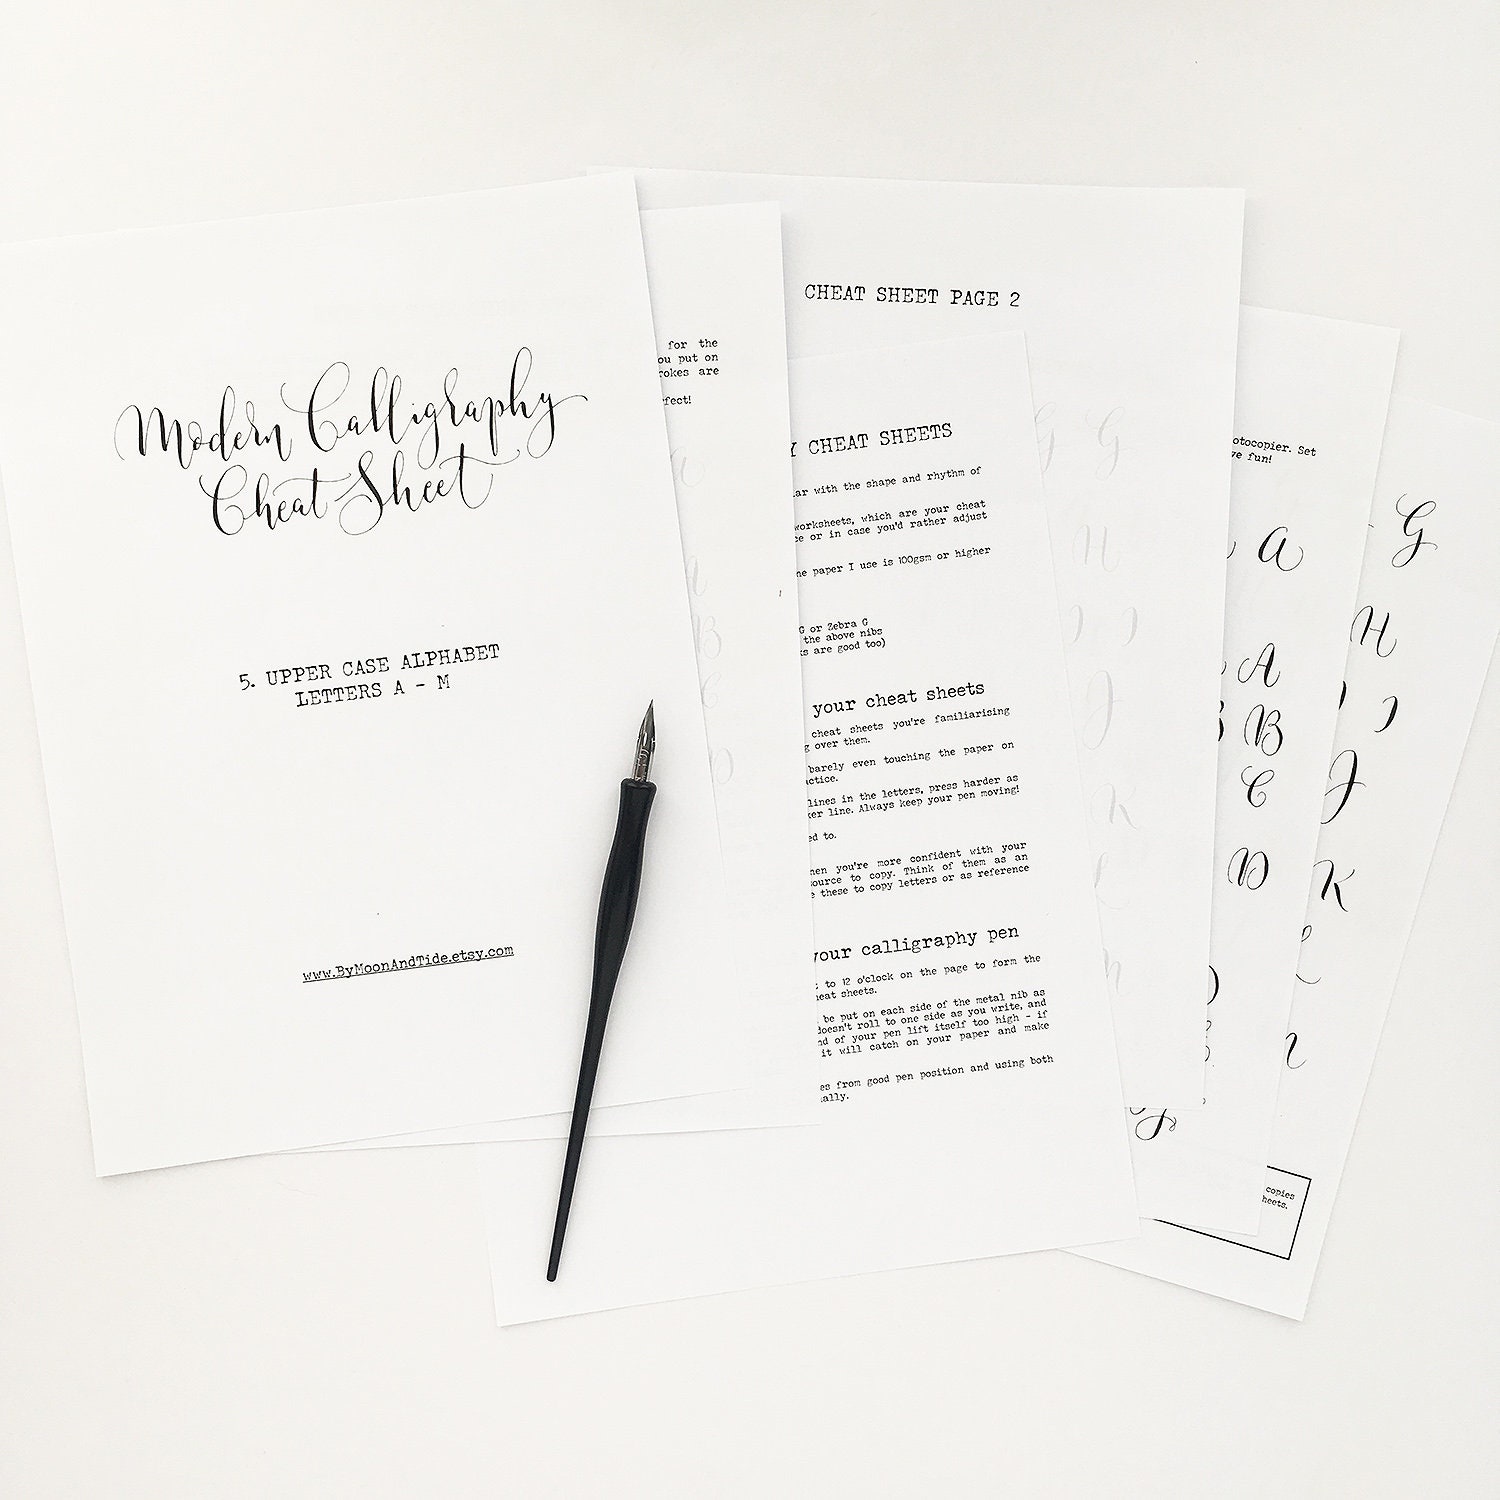 Modern Calligraphy
Cheat Sheet
5. UPPER CASE ALPHABET
LETTERS A - M
www.ByMoonAndTide.etsy.com
for the
ou put on
rokes are
fect!
a
A
B
C
D
CHEAT SHEET PAGE 2
G G
H
I I
J
K
L
Y CHEAT SHEETS
ar with the shape and rhythm of
worksheets, which are your cheat
ce or in case you'd rather adjust
he paper I use is 100gsm or higher
G or Zebra G
the above nibs
ks are good too)
your cheat sheets
cheat sheets you're familiarising
g over them.
barely even touching the paper on
actice.
lines in the letters, press harder as
ker line. Always keep your pen moving!
ed to.
hen you're more confident with your
source to copy. Think of them as an
e these to copy letters or as reference
your calligraphy pen
t to 12 o'clock on the page to form the
heat sheets.
be put on each side of the metal nib as
doesn't roll to one side as you write, and
nd of your pen lift itself too high - if
it will catch on your paper and make
es from good pen position and using both
ally.
otocopier. Set
ve fun!
a
A
B
C
D
G
H
I
J
K
copies
heets.